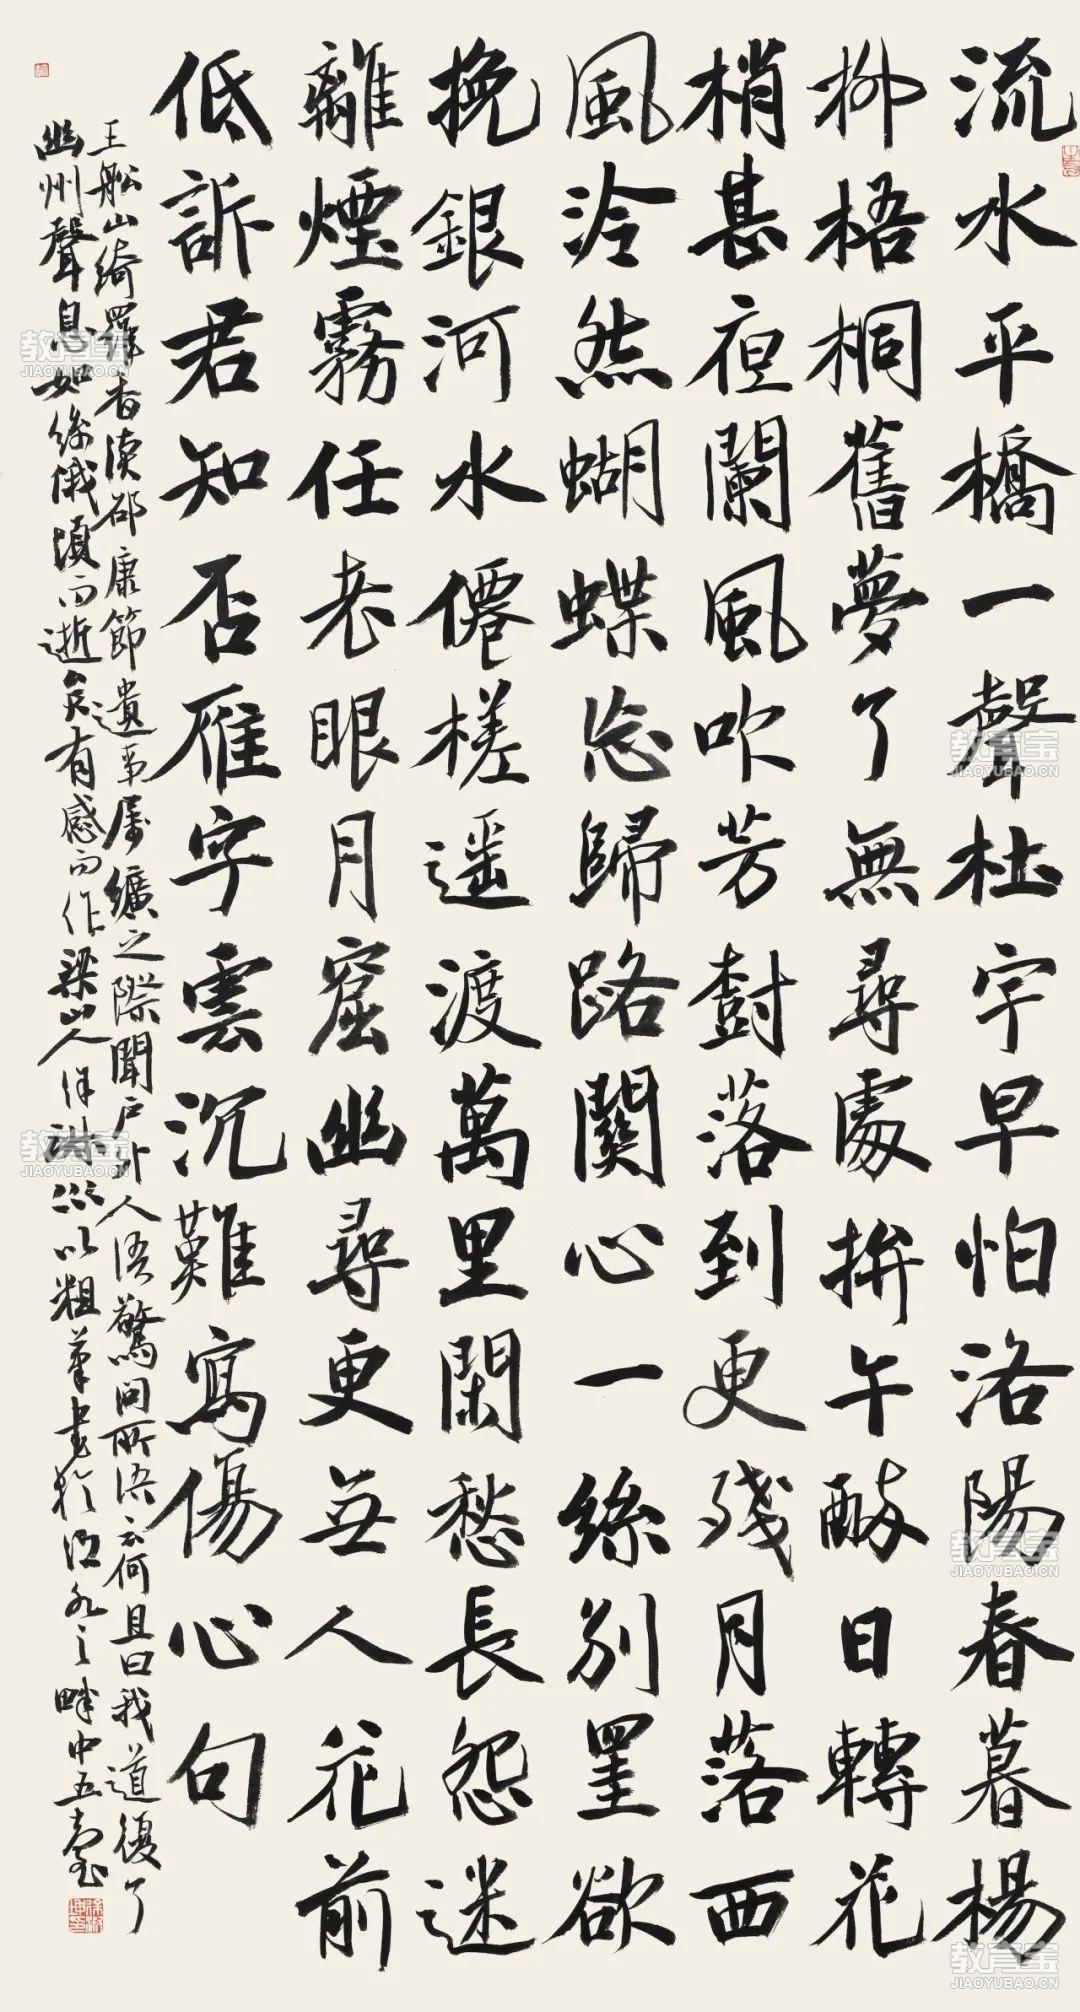 流水平橋一聲杜宇早怕洛陽春暮楊
柳梧桐舊夢了無尋處拚午醉日轉花
梢甚夜闌風吹芳樹落到更殘月落西
風泠然蝴蝶忘歸路關心一絲別罣欲
挽銀河水僊槎遥渡萬里閑愁長怨迷
離煙霧任老眼月窟幽尋更無人花前
低訴君知否雁字雲沉難寫傷心句
王船山綺羅香讀邵康節遺事屬纊之際聞戶外人語驚問所語云何且曰我道復了
幽州聲息如絲俄頃而逝矣有感而作梁山人 以粗筆書於江水之畔中五
教育宝
JIAOYUBAO.CN
教育宝
JIAOYUBAO.CN
教育宝
JIAOYUBAO.CN
教育宝
JIAOYUBAO.CN
教育宝
JIAOYUBAO.CN